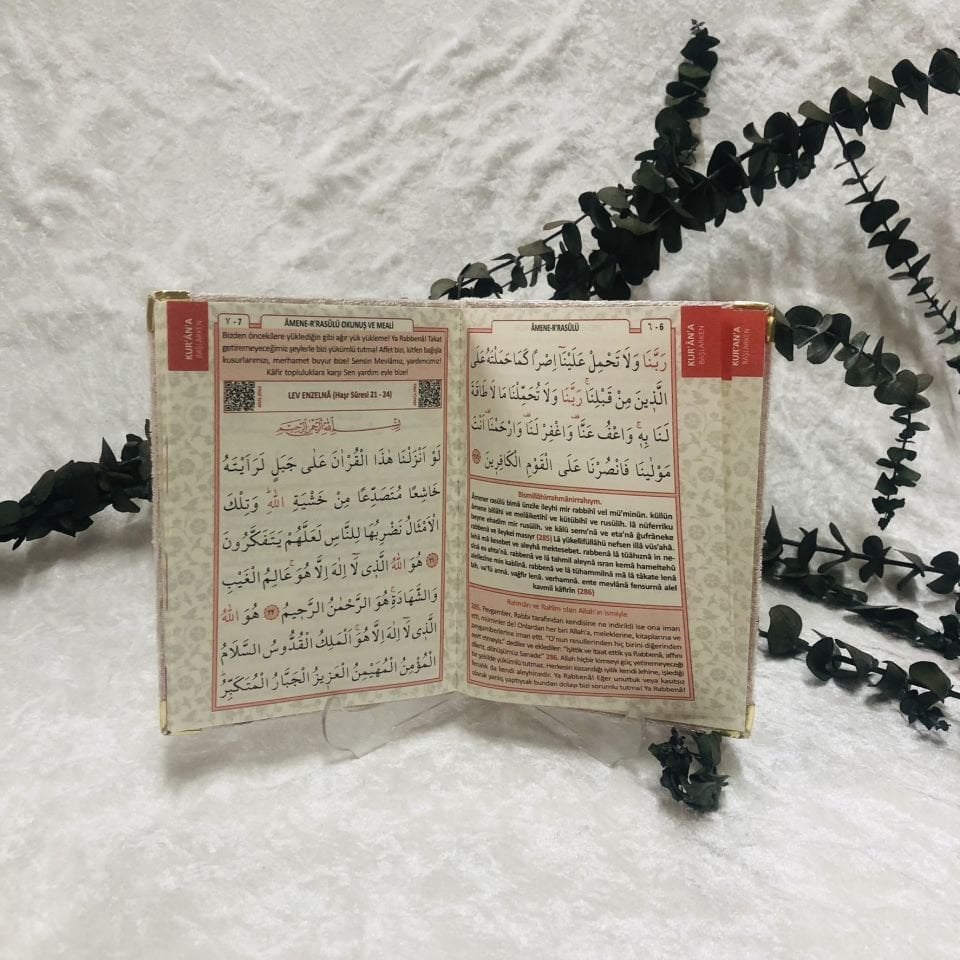 ٦ - 6
ÂMENE-R'RASÛLÜ
KUR'ÂN'A
BAŞLARKEN
KUR'ÂN'A
BAŞLARKEN
رَبَّنَا وَلَا تَحْمِلْ عَلَيْنَٓا اِصْرًا كَمَا حَمَلْتَهُ عَلَى
الَّذ۪ينَ مِنْ قَبْلِنَاۚ رَبَّنَا وَلَا تُحَمِّلْنَا مَا لَا طَاقَةَ
لَنَا بِه۪ۚ وَاعْفُ عَنَّا۠ وَاغْفِرْ لَنَا۠ وَارْحَمْنَا۠ اَنْتَ
مَوْلٰينَا فَانْصُرْنَا عَلَى الْقَوْمِ الْكَافِر۪ينَ
Bismillâhirrahmânirrahıym.
Âmener rasûlü bimâ ünzile ileyhi mir rabbihî vel mü'minûn, küllün
âmene billâhi ve melâiketihî ve kütübihî ve rusülih. lâ nüferriku
beyne ehadim mir rusülih, ve kâlû semi'nâ ve eta'nâ ğufrâneke
rabbenâ ve ileykel masıyr (285) Lâ yükellifüllâhü nefsen illâ vüs'ahâ.
lehâ mâ kesebet ve aleyhâ mektesebet. rabbenâ lâ tüâhıznâ in ne-
sînâ ev ahta'nâ. rabbenâ ve lâ tahmil aleynâ ısran kemâ hameltehû
alellezîne min kablinâ. rabbenâ ve lâ tühammilnâ mâ lâ tâkate lenâ
bih, va'fü annâ. vağfir lenâ. verhamnâ. ente mevlânâ fensurnâ alel
kavmil kâfirîn (286)
Rahmân ve Rahîm olan Allah'ın ismiyle
285. Peygamber, Rabbi tarafından kendisine ne indirildi ise ona iman
etti, müminler de! Onlardan her biri Allah'a, meleklerine, kitaplarına ve
peygamberlerine iman etti. "O'nun resullerinden hiç birini diğerinden
ayırt etmeyiz." dediler ve eklediler: "İşittik ve itaat ettik ya Rabbenâ, affını
dileriz, dönüşümüz Sanadır." 286. Allah hiçbir kimseyi güç yetiremeyeceği
bir şekilde yükümlü tutmaz. Herkesin kazandığı iyilik kendi lehine, işlediği
fenalık da kendi aleyhinedir. Ya Rabbenâ! Eğer unuttuk veya kasıtsız
olarak yanlış yaptıysak bundan dolayı bizi sorumlu tutma! Ya Rabbenâ!
KUR'ÂN'A
BAŞLARKEN
٧ - 7
ÂMENE-R'RASÛLÜ OKUNUŞ VE MEALİ
Bizden öncekilere yüklediğin gibi ağır yük yükleme! Ya Rabbenâ! Takat
getiremeyeceğimiz şeylerle bizi yükümlü tutma! Affet bizi, lütfen bağışla
kusurlarımızı, merhamet buyur bize! Sensin Mevlâmız, yardımcımız!
Kâfir topluluklara karşı Sen yardım eyle bize!
LEV ENZELNÂ (Haşr Sûresi 21 - 24)
بِسْمِ اللّٰهِ الرَّحْمٰنِ الرَّح۪يمِ
لَوْ اَنْزَلْنَا هٰذَا الْقُرْاٰنَ عَلٰى جَبَلٍ لَرَاَيْتَهُ
خَاشِعًا مُتَصَدِّعًا مِنْ خَشْيَةِ اللّٰهِۜ وَتِلْكَ
الْاَمْثَالُ نَضْرِبُهَا لِلنَّاسِ لَعَلَّهُمْ يَتَفَكَّرُونَ
﴿٢١﴾ هُوَ اللّٰهُ الَّذ۪ي لَٓا اِلٰهَ اِلَّا هُوَۚ عَالِمُ الْغَيْبِ
وَالشَّهَادَةِۚ هُوَ الرَّحْمٰنُ الرَّح۪يمُ ﴿٢٢﴾ هُوَ اللّٰهُ
الَّذ۪ي لَٓا اِلٰهَ اِلَّا هُوَۚ اَلْمَلِكُ الْقُدُّوسُ السَّلَامُ
الْمُؤْمِنُ الْمُهَيْمِنُ الْعَز۪يزُ الْجَبَّارُ الْمُتَكَبِّرُۜ